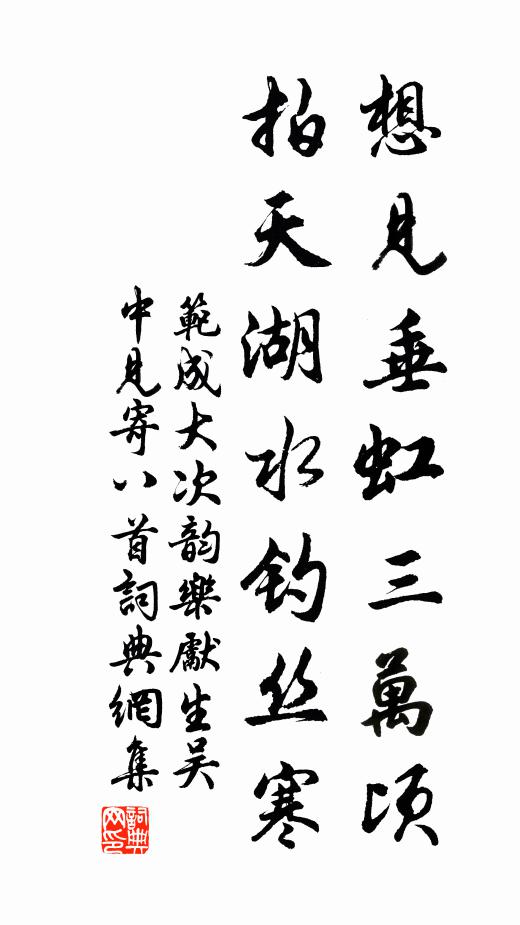 想見垂虹三萬頃
拍天湖水钓丝寒
範成大次韵樂獻生吴
中見寄八首詞典網集
詞典
网印